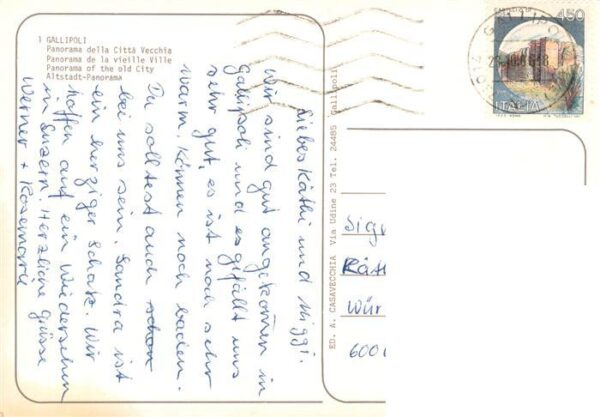 1 GALLIPOLI
Panorama della Città Vecchia
Panorama de la vieille Ville
Panorama of the old City
Altstadt-Panorama
Liebes Käthi und Miggi.
Wir sind gut angekommen in
Gallipoli und es gefällt uns
sehr gut, es ist noch sehr
warm. Können noch baden.
Du solltest auch schon
bei uns sein. Sandra ist
ein herziger Schatz. Wir
hoffen auf ein Wiedersehen
in Luzern. Herzliche Grüsse
Werner + Rosemarie
ED. A. CASAVECCHIA Via Udine 23 Tel. 24485 Gallipoli
450
ITALIA
GALLIPOLI
Sig
Kät
Wür
600